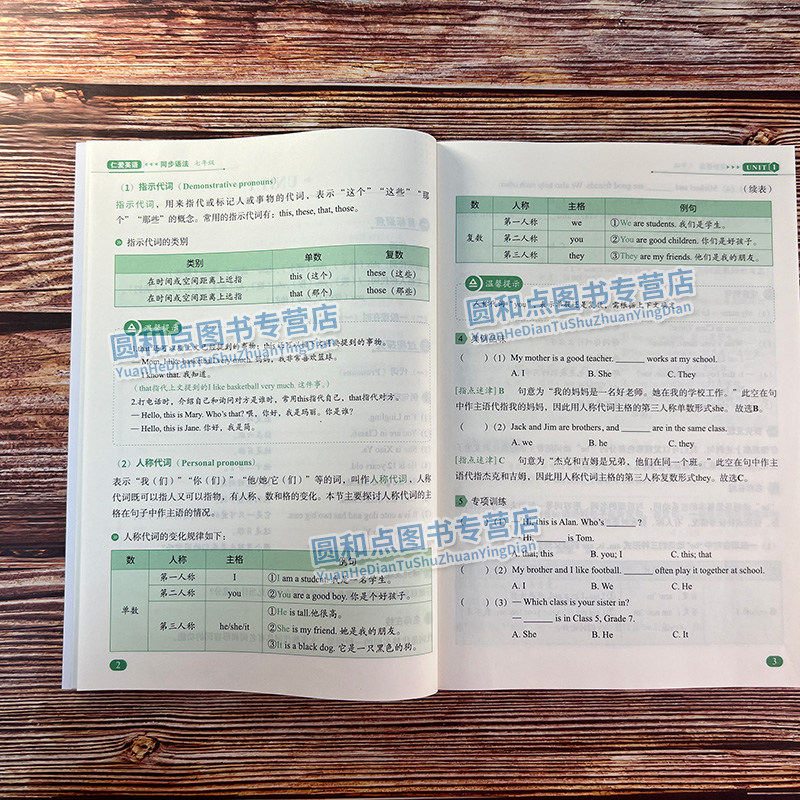 仁爱英语 同步语法 七年级
(1) 指示代词 (Demonstrative pronouns)
指示代词，用来指代或标记人或事物的代词，表示“这个”“这些”“那
个”“那些”的概念。常用的指示代词有：this, these, that, those。
指示代词的类别
类别 单数 复数
在时间或空间距离上近指 this（这个） these（这些）
在时间或空间距离上远指 that（那个） those（那些）
温馨提示
圆和点图书专营店
YuanHeDianTuShuZhuanYingDian
I know that. 我知道。
(that指代上文提到的I like basketball very much 这件事。)
2.打电话时，介绍自己和询问对方是谁时，常用this指代自己，that指代对方。
— Hello, this is Mary. Who's that? 喂，你好，我是玛丽。你是谁？
— Hello, this is Jane. 你好，我是简。
(2) 人称代词 (Personal pronouns)
表示“我（们）”“你（们）”“他/她/它（们）”等的词，叫作人称代词，人称
代词既可以指人又可以指物，有人称、数和格的变化。本节主要探讨人称代词的主
格在句子中作主语的情况。
人称代词的变化规律如下：
数 人称 主格 例句
单数
第一人称 I ①I am a student. 我是一名学生。
第二人称 you ②You are a good boy. 你是个好孩子。
第三人称 he/she/it
①He is tall.他很高。
②She is my friend. 她是我的朋友。
③It is a black dog. 它是一只黑色的狗。
2
UNIT 1
（续表）
数 人称 主格 例句
复数
第一人称 we ①We are students. 我们是学生。
第二人称 you ②You are good children. 你们是好孩子。
第三人称 they ③They are my friends. 他们是我的朋友。
温馨提示
圆和点图书专营店
YuanHeDianTuShuzhuanYingDian
4
( ) (1) My mother is a good teacher. ______ works at my school.
A. I B. She C. They
[指点迷津] B 句意为“我的妈妈是一名好老师。她在我的学校工作。”此空在句
中作主语代指我的妈妈，因此用人称代词主格的第三人称单数形式she。故选B。
( ) (2) Jack and Jim are brothers, and ______ are in the same class.
A. we B. he C. they
[指点迷津] C 句意为“杰克和吉姆是兄弟，他们在同一个班。”此空在句中作主
语代指杰克和吉姆，因此用人称代词主格的第三人称复数形式they。故选C。
5 专项训练
( ) (1) — Hi, this is Alan. Who's ______ ?
— Hi, ______ is Tom.
A. that; this B. you; I C. this; that
( ) (2) My brother and I like football. ______ often play it together at school.
A. I B. We C. He
( ) (3) — Which class is your sister in?
— ______ is in Class 5, Grade 7.
A. She B. He C. It
3
圆和点图书专营店
YuanHeDianTuShuzhuanYingDian